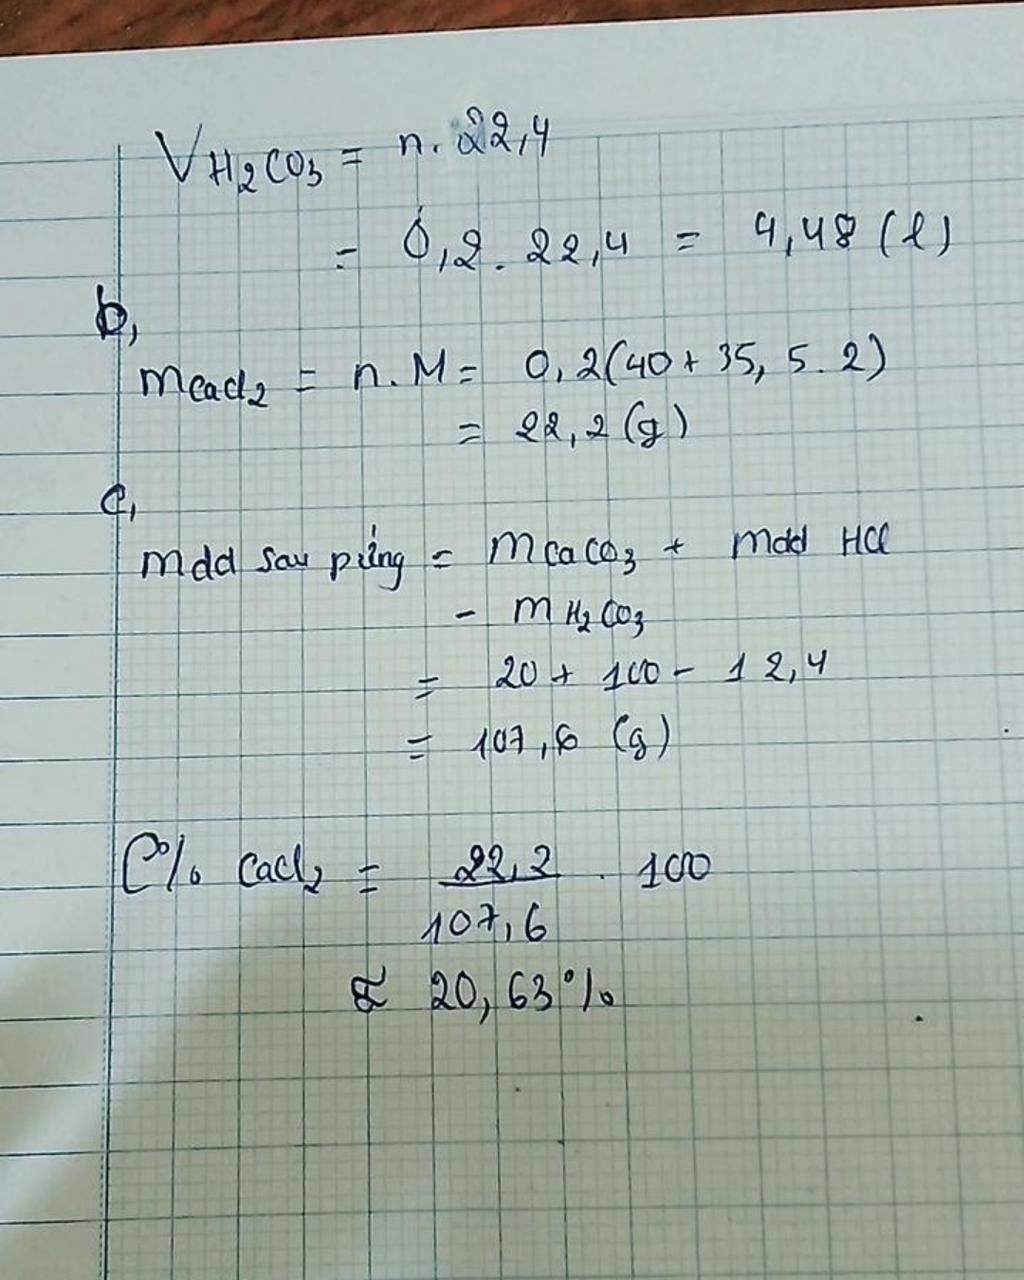 V H2CO3 = n. 22,4
= 0,2. 22,4 = 4,48 (l)
b,
mCaCl2 = n. M = 0,2(40 + 35,5. 2)
= 22,2 (g)
c,
mdd sau pứng = mCaCO3 + mdd HCl
- m H2CO3
= 20 + 100 - 12,4
= 107,6 (g)
C% CaCl2 = 22,2 / 107,6 . 100
≈ 20,63%